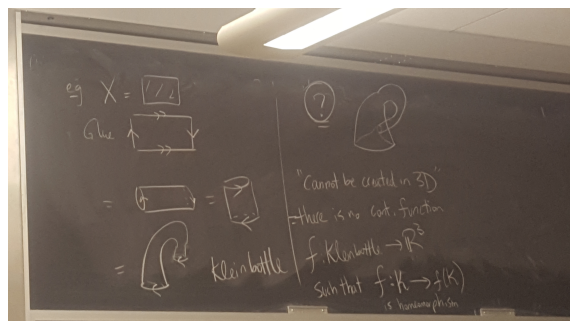 eg X =
Glue
=
=
= Klein bottle
?
"Cannot be created in 3D"
= there is no cont. function
f: Kleinbottle → R³
such that f: K → f(K)
is homeomorphism